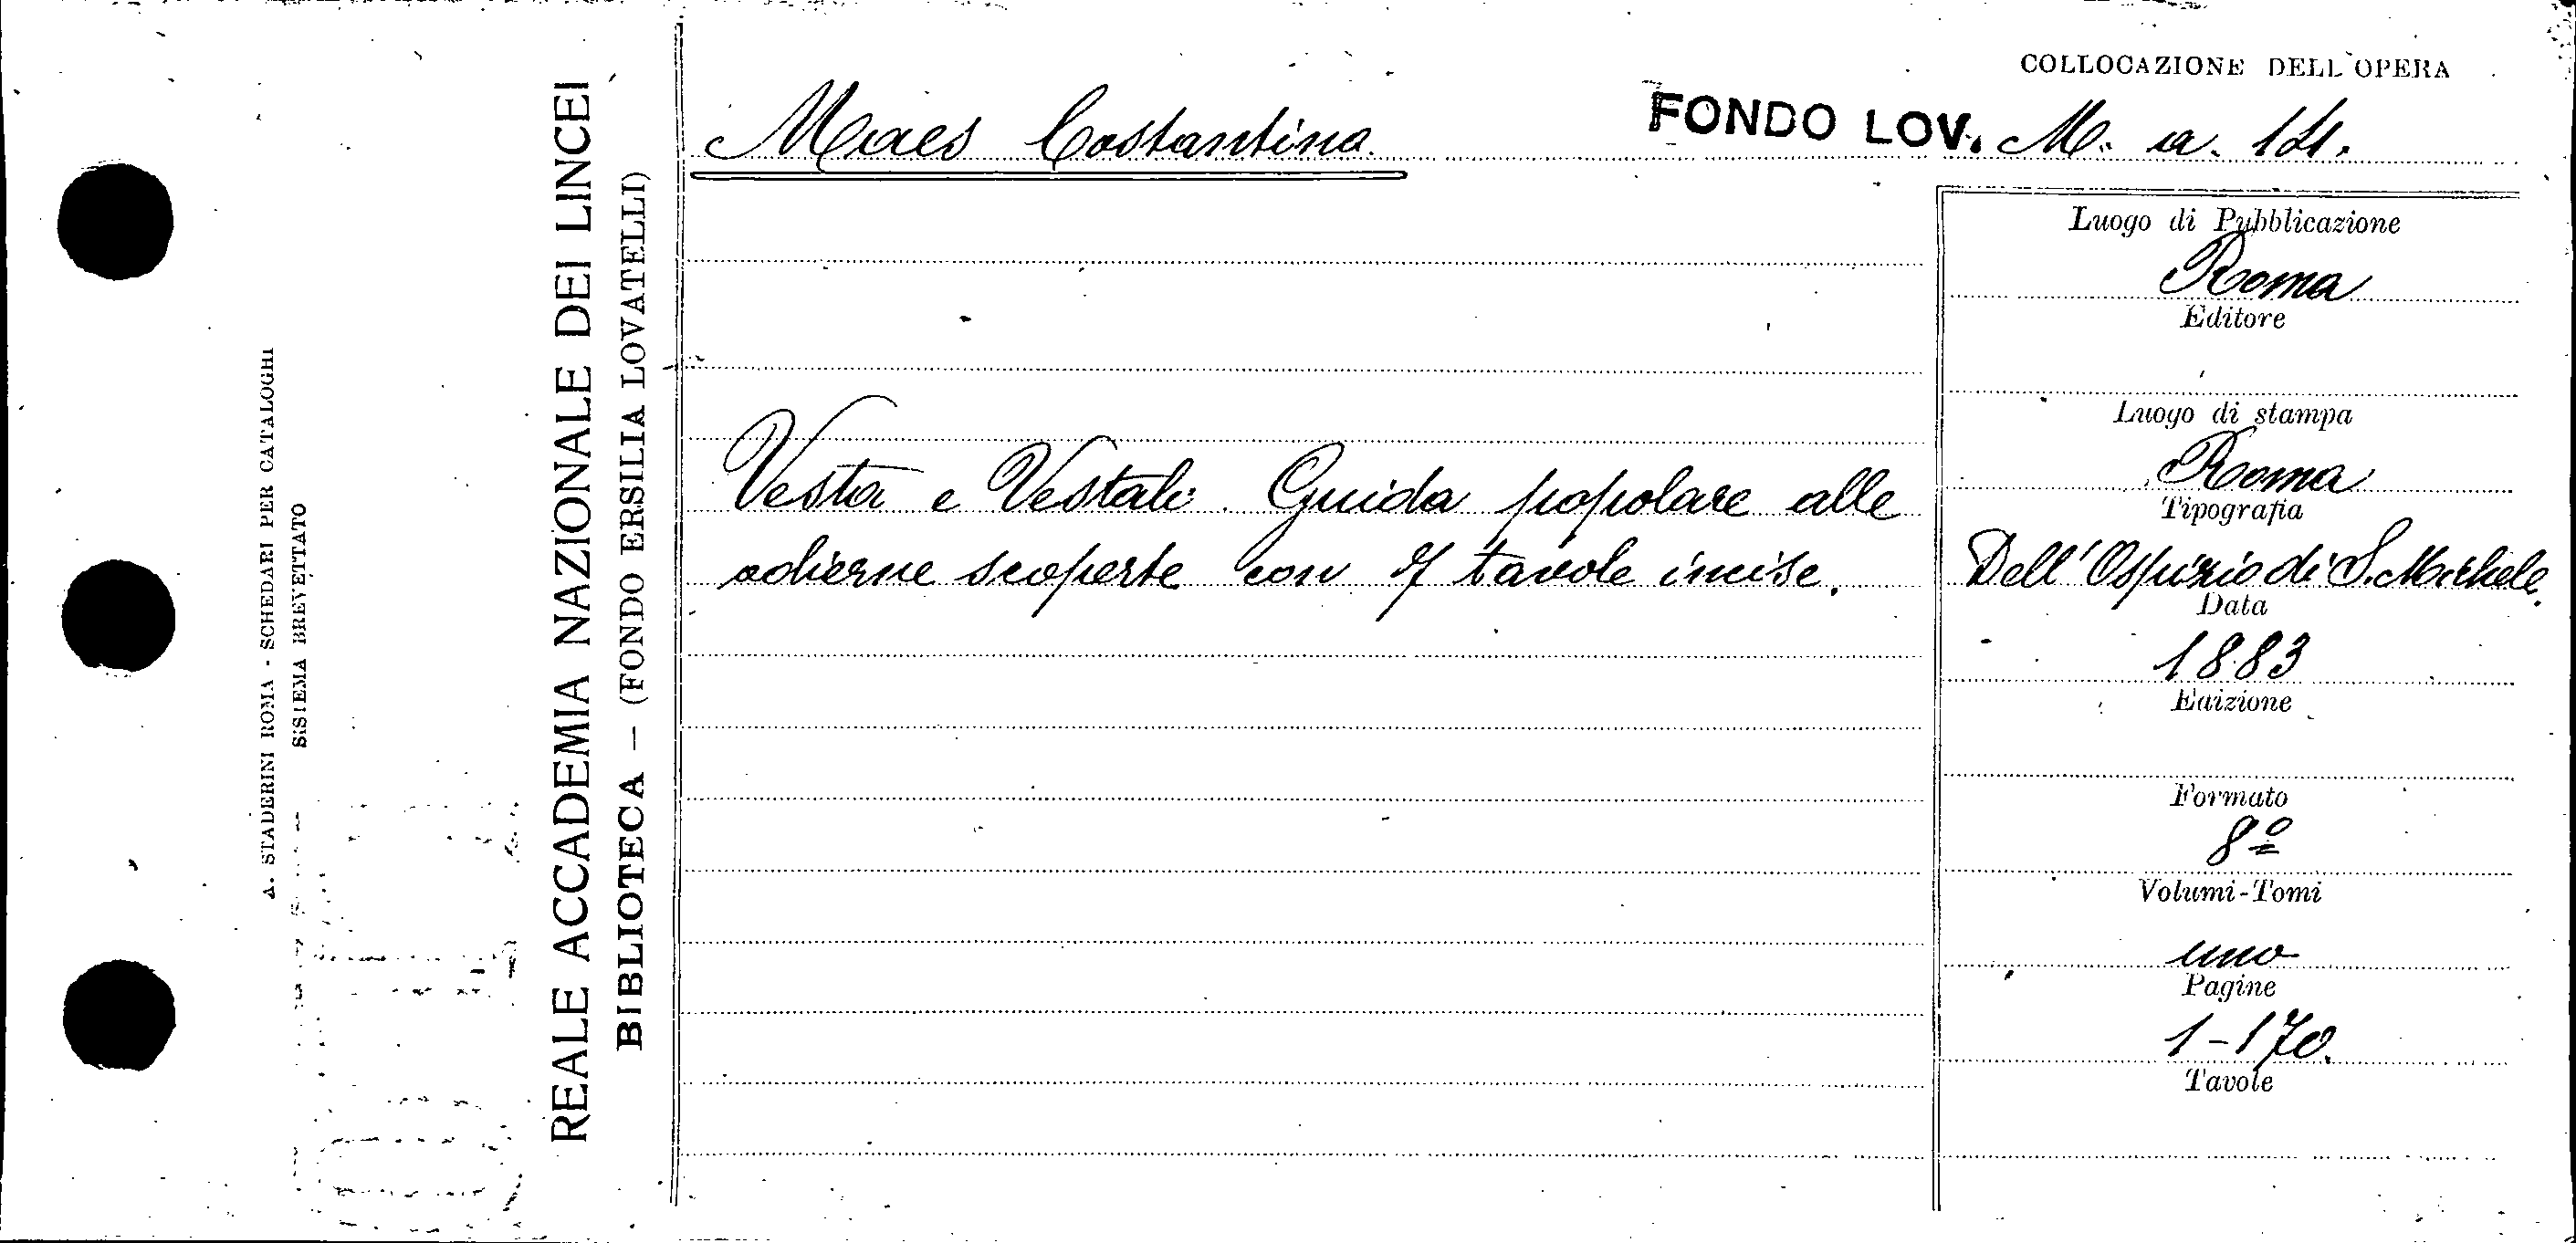 COLLOCAZIONE DELL'OPERA
Maes Costantino.
FONDO LOV. M. a. 
Vesta e Vestali. Guida popolare alle
odierne scoperte con 7 tavole incise.
Luogo di Pubblicazione
Roma
Editore
Luogo di stampa
Roma
Tipografia
Dell'Ospizio di S. Michele.
Data
1883
Edizione
Formato
8º
Volumi-Tomi
uno
Pagine
1-170.
Tavole
REALE ACCADEMIA NAZIONALE DEI LINCEI
BIBLIOTECA — (FONDO ERSILIA LOVATELLI)
A. STADERINI ROMA - SCHEDARI PER CATALOGHI
SISTEMA BREVETTATO